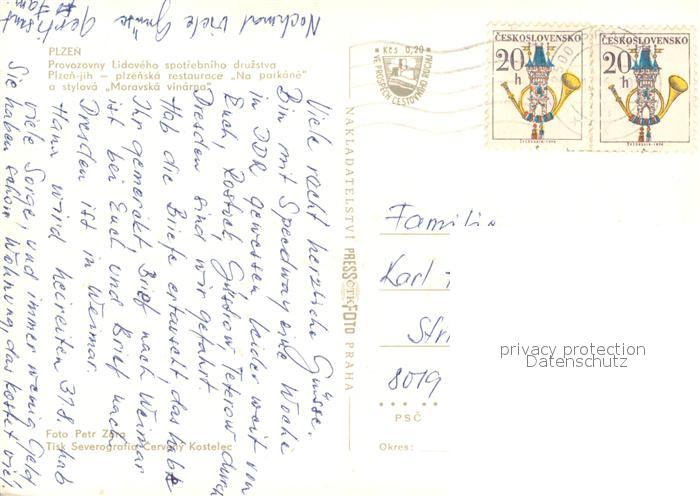 Nochmal viele Grüsse
PLZEŇ
Provozovny Lidového spotřebního družstva
Plzeň-jih — plzeňská restaurace „Na parkáně"
a stylová „Moravská vinárna"
Viele recht herzliche Grüsse.
Bin mit Speedway eine Woche
in DDR gewessen leider weit von
Euch, Rostock, Güstrow Teterow durch
Dresden sind wir gefahrt.
Hab die Briefe ertauscelt das habt
Ihr gemerckt, Brief nach Weimar
ist bei Euch und Brief nach
Dresden ist in Weimar.
Hana wird heireiten 31.8. hab
viele Sorge, und immer wenig Geld
Sie haben schon Wohnung, das kostet viel.
Foto Petr Zora
Tisk Severografia Červený Kostelec
NAKLADATELSTVÍ PRESSFOTO PRAHA
Kčs 0,20
VE PROSPĚCH CESTOVNÍHO RUCHU
ČESKOSLOVENSKO
20 h
ČESKOSLOVENSKO
20 h
Familie
Karl
Str
8019
PSČ
Okres:
privacy protection
Datenschutz